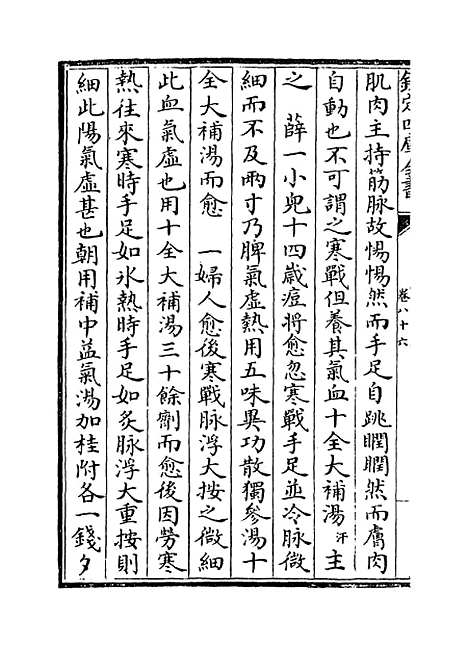 欽定四庫全書
卷八十六
肌肉主持筋脉故惕惕然而手足自跳瞤瞤然而膚肉
自動也不可謂之寒戰但養其氣血十全大補湯汗主
之　薛一小兒十四歲痘將愈忽寒戰手足並冷脉微
細而不及兩寸乃脾氣虛熱用五味異功散獨參湯十
全大補湯而愈　一婦人愈後寒戰脉浮大按之微細
此血氣虛也用十全大補湯三十餘劑而愈後因勞寒
熱往來寒時手足如氷熱時手足如炙脉浮大重按則
細此陽氣虛甚也朝用補中益氣湯加桂附各一錢夕